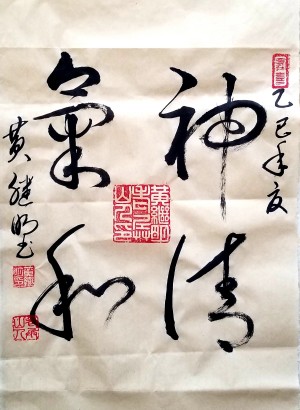 乙巳年夏
神清
氣和
黄继明